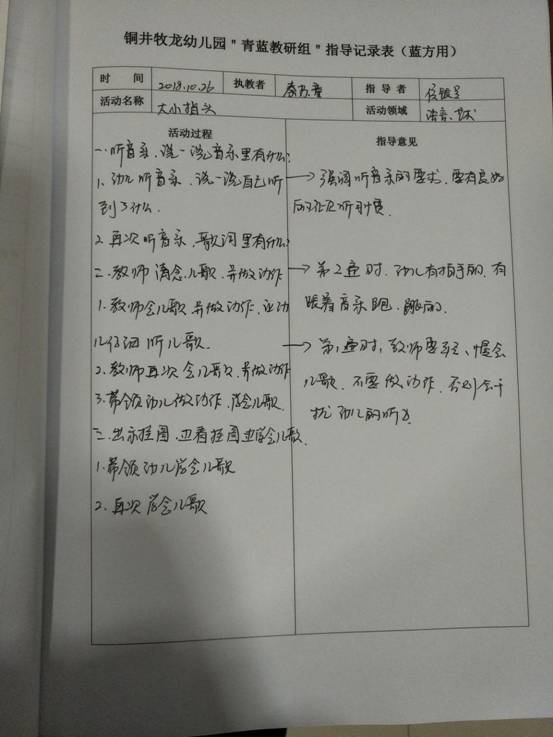 铜井牧龙幼儿园＂青蓝教研组＂指导记录表（蓝方用）
时 间 2018.10.26 执教者 指导者
活动名称 大小指头 活动领域 语言、艺术
活动过程
一、听音乐，说一说音乐里有什么？
1、幼儿听音乐，说一说自己听
到了什么.
2.再次听音乐，歌词里有什么？
二、教师 念儿歌，并做动作
1.教师念儿歌，并做动作，让幼
儿仔细听儿歌.
2.教师再次念儿歌，并做动作
3.带领幼儿做动作，学念儿歌.
三.出示挂图，边看挂图边学念儿歌.
1.带领幼儿学念儿歌
2.再次学念儿歌
指导意见
强调听音乐的要求，要有良好
的 听习惯.
第2遍时，幼儿有拍手的，有
跟着音乐跑、跳的.
第1遍时，教师要 、慢念
儿歌，不要做动作，否则会干
扰幼儿的听力.